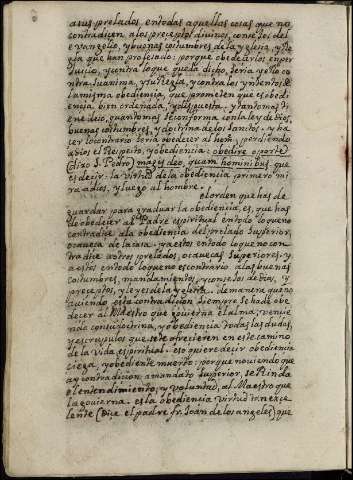 asus prelados, en todas aquellas cosas que no
contradicen, a los preceptos divinos, consejos del
evangelio, y buenas costumbres de la yglesia, y Re
gla que han profesado: porque obedecerlos en per
juicio, y contra lo que queda dicho, sería
contra su anima, y su Regla, y contra los yntentos de
la misma obediencia, que prometen que es obe
diencia bien ordenada, y dispuesta. y tanto mas ti
ene de io, quanto mas se conforma con la ley de Dios,
buenas costumbres, y doctrina de los Santos. y ha
cer lo contrario sería obedecer al hom. perdiendo
a Dios el Respecto, y obediencia: obedire oportet
(dixo S. Pedro) magis deo, quam hominibus. que
es decir: la virtud de la obediencia primero mi
ra a dios, y luego al hombre.
el orden que has de
guardar para graduar la obediencia, es, que has
de obedecer al Padre espiritual en todo lo que no
contradice a la obediencia del prelado Superior,
o cabeca de la casa. y a estos en todo lo que no con
tradice a otros prelados, o cabecas Superiores. y
a estos en todo lo que no es contrario a las buenas
costumbres, mandamientos, y consejos de dios, y
preceptos, y leyes de la yglesia. de manera que no
aviendo esta contradicion siempre se ha de obe
decer al Maestro que govierna el alma; venien
do con su doctrina, y obediencia todas las dudas,
y escrupulos que se te ofrecieren en este camino
de la vida espiritual. eso quiere decir obediencia
ciega, y obediente muerto: porque no viendo que
ay contradicion a mandato Superior, se Rinda
el entendimiento, y voluntad, al Maestro que
la govierna. es la obediencia virtud tan exce
lente (Dice el padre fr. Joan de los angeles) que